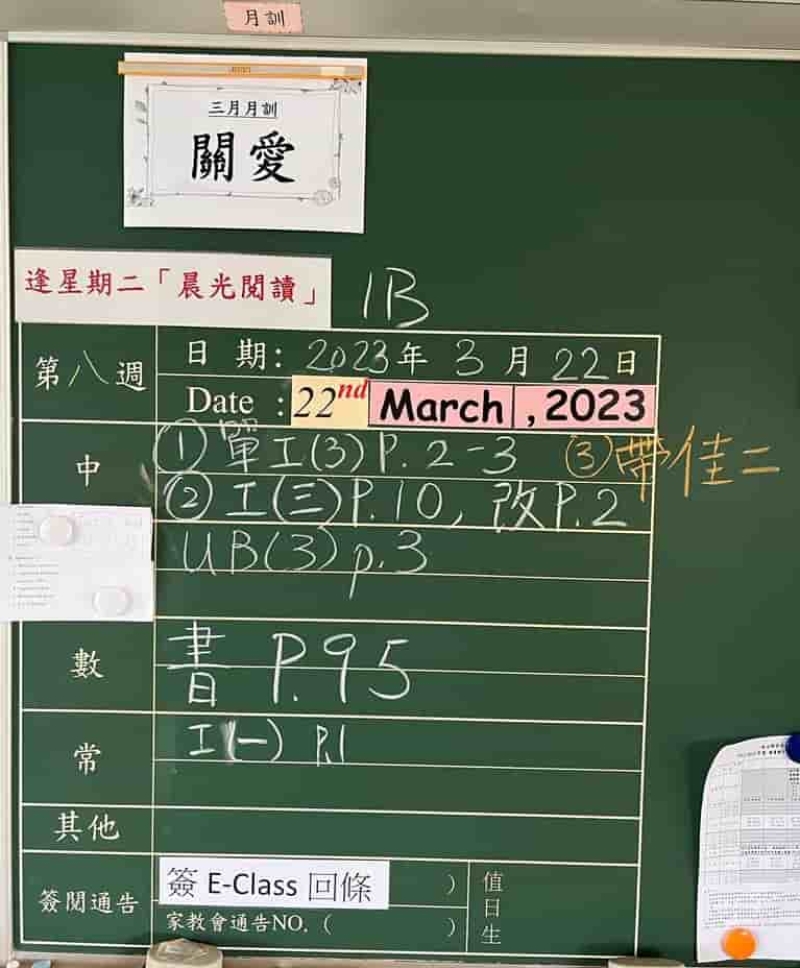 月訓
三月月訓
關愛
逢星期二「晨光閱讀」 1B
第八週
日期: 2023年 3月 22日
Date : 22nd March , 2023
中
① 單工(3) P. 2-3 ③帶佳二
② 工(三) P.10, 改P.2
UB(3) p.3
數
書 P.95
常
工(一) P.1
其他
簽閱通告
簽 E-Class 回條 )
家教會通告NO. ( )
值日生